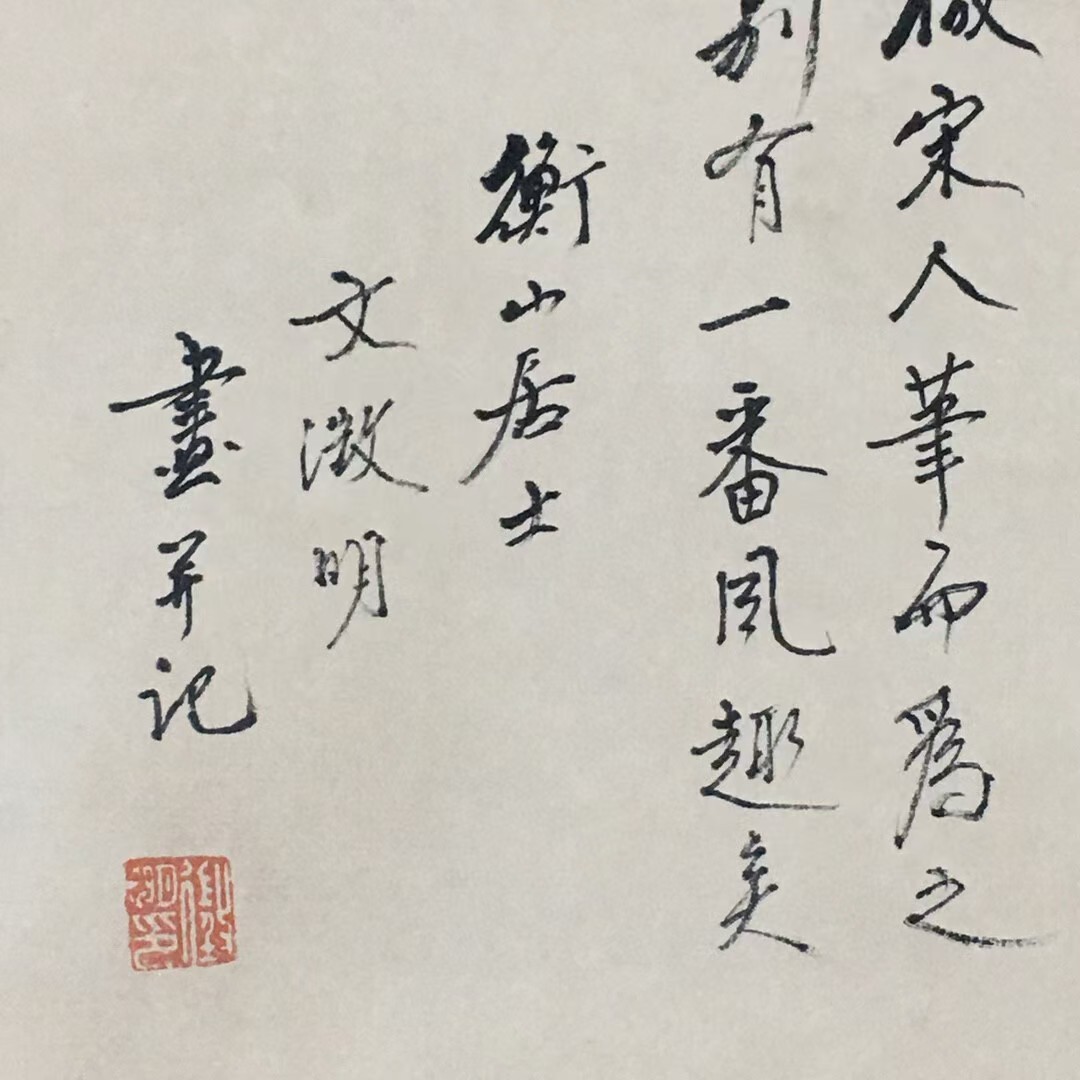 倣宋人筆而為之
別有一番风趣矣
衡山居士
文徵明
畫并记